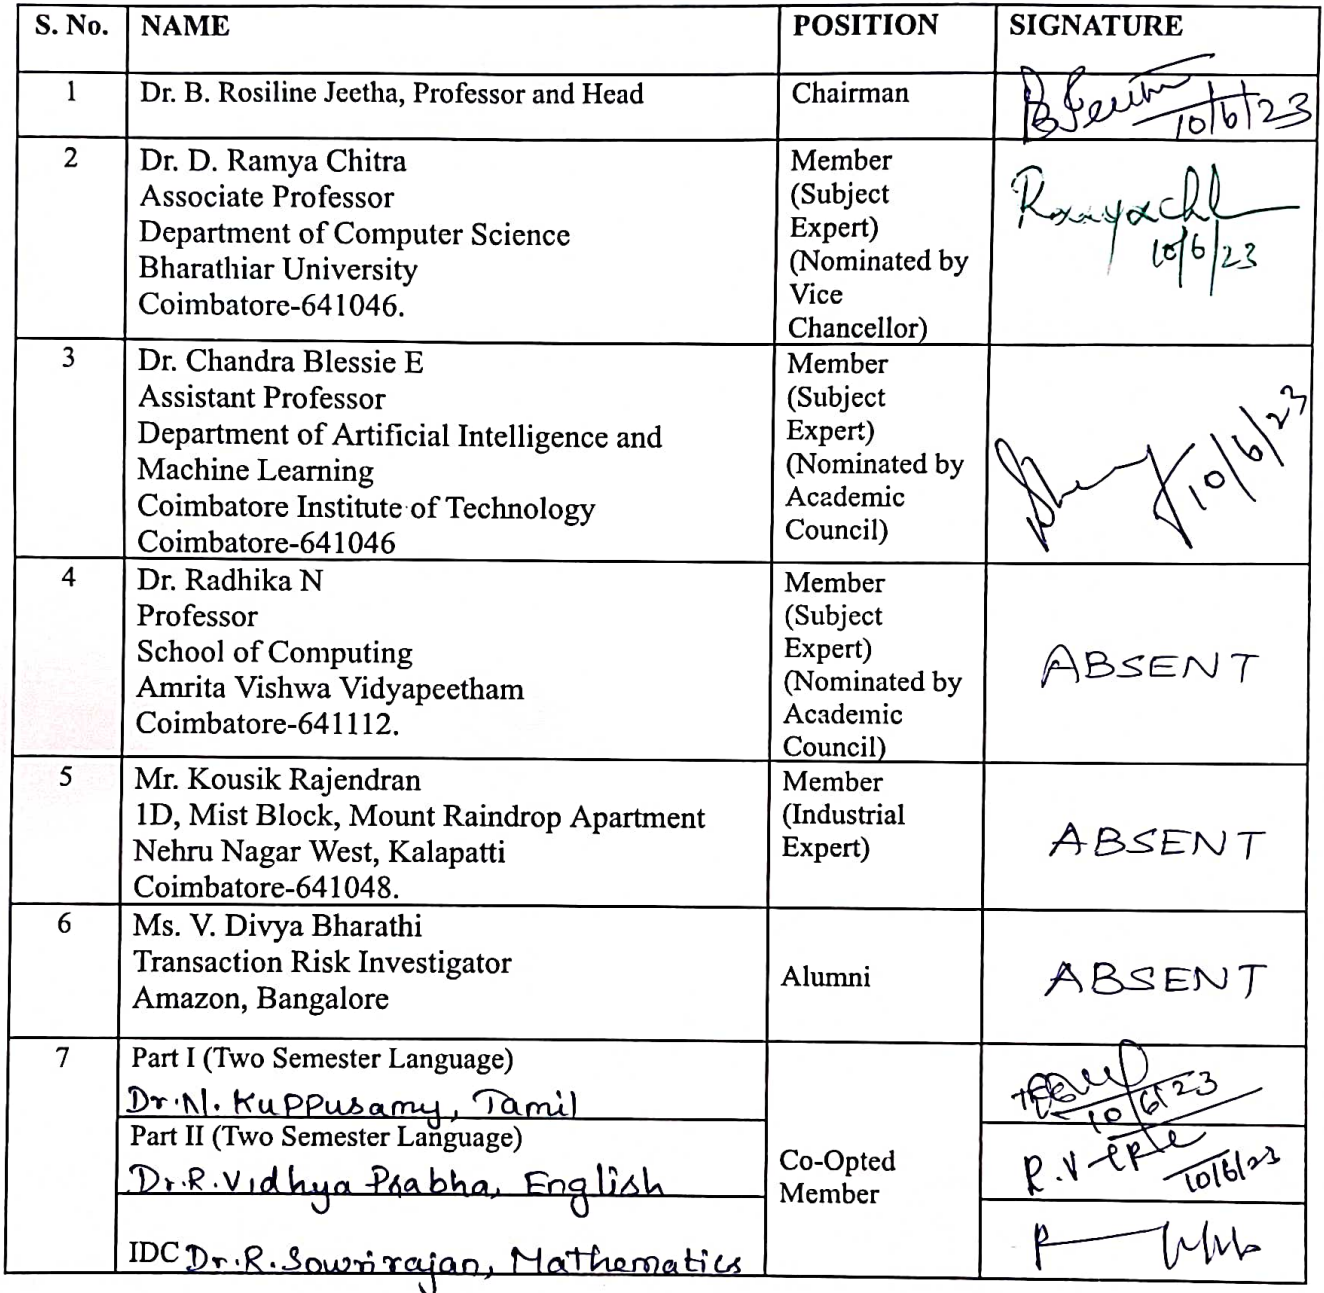 S. No. NAME POSITION SIGNATURE
1 Dr. B. Rosiline Jeetha, Professor and Head Chairman
10/6/23
2 Dr. D. Ramya Chitra
Associate Professor
Department of Computer Science
Bharathiar University
Coimbatore-641046.
Member
(Subject
Expert)
(Nominated by
Vice
Chancellor)
10/6/23
3 Dr. Chandra Blessie E
Assistant Professor
Department of Artificial Intelligence and
Machine Learning
Coimbatore Institute of Technology
Coimbatore-641046
Member
(Subject
Expert)
(Nominated by
Academic
Council)
10/6/23
4 Dr. Radhika N
Professor
School of Computing
Amrita Vishwa Vidyapeetham
Coimbatore-641112.
Member
(Subject
Expert)
(Nominated by
Academic
Council)
ABSENT
5 Mr. Kousik Rajendran
1D, Mist Block, Mount Raindrop Apartment
Nehru Nagar West, Kalapatti
Coimbatore-641048.
Member
(Industrial
Expert)
ABSENT
6 Ms. V. Divya Bharathi
Transaction Risk Investigator
Amazon, Bangalore
Alumni
ABSENT
7 Part I (Two Semester Language)
Dr.N. Kuppusamy, Tamil
Part II (Two Semester Language)
Dr.R.Vidhya Prabha, English
IDC Dr.R.Sowrirajan, Mathematics
Co-Opted
Member
10/6/23
R.V
10/6/23